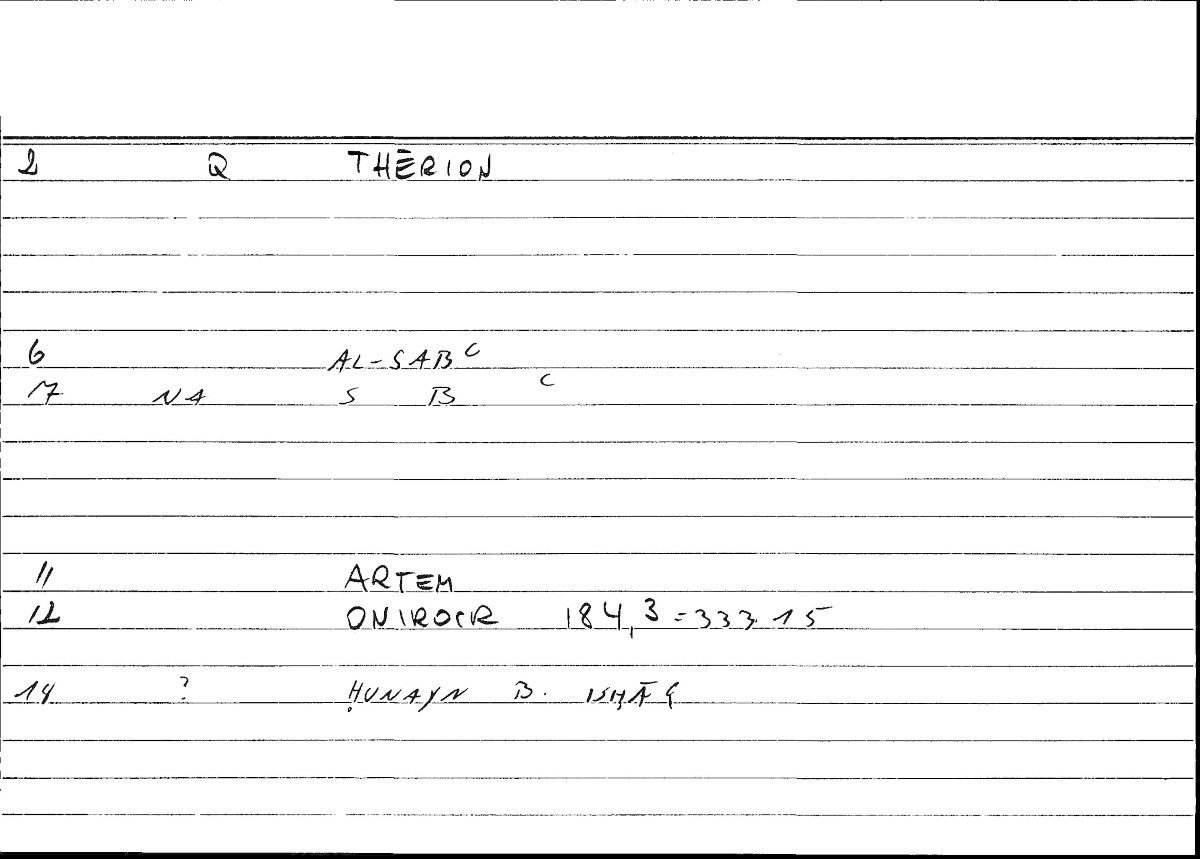 2 Q THĒRION
6 AL-SABC
17 NA S B C
11 ARTEM
12 ONIROCR 184,3=333.15
14 ? ḤUNAYN B. ISḤĀQ